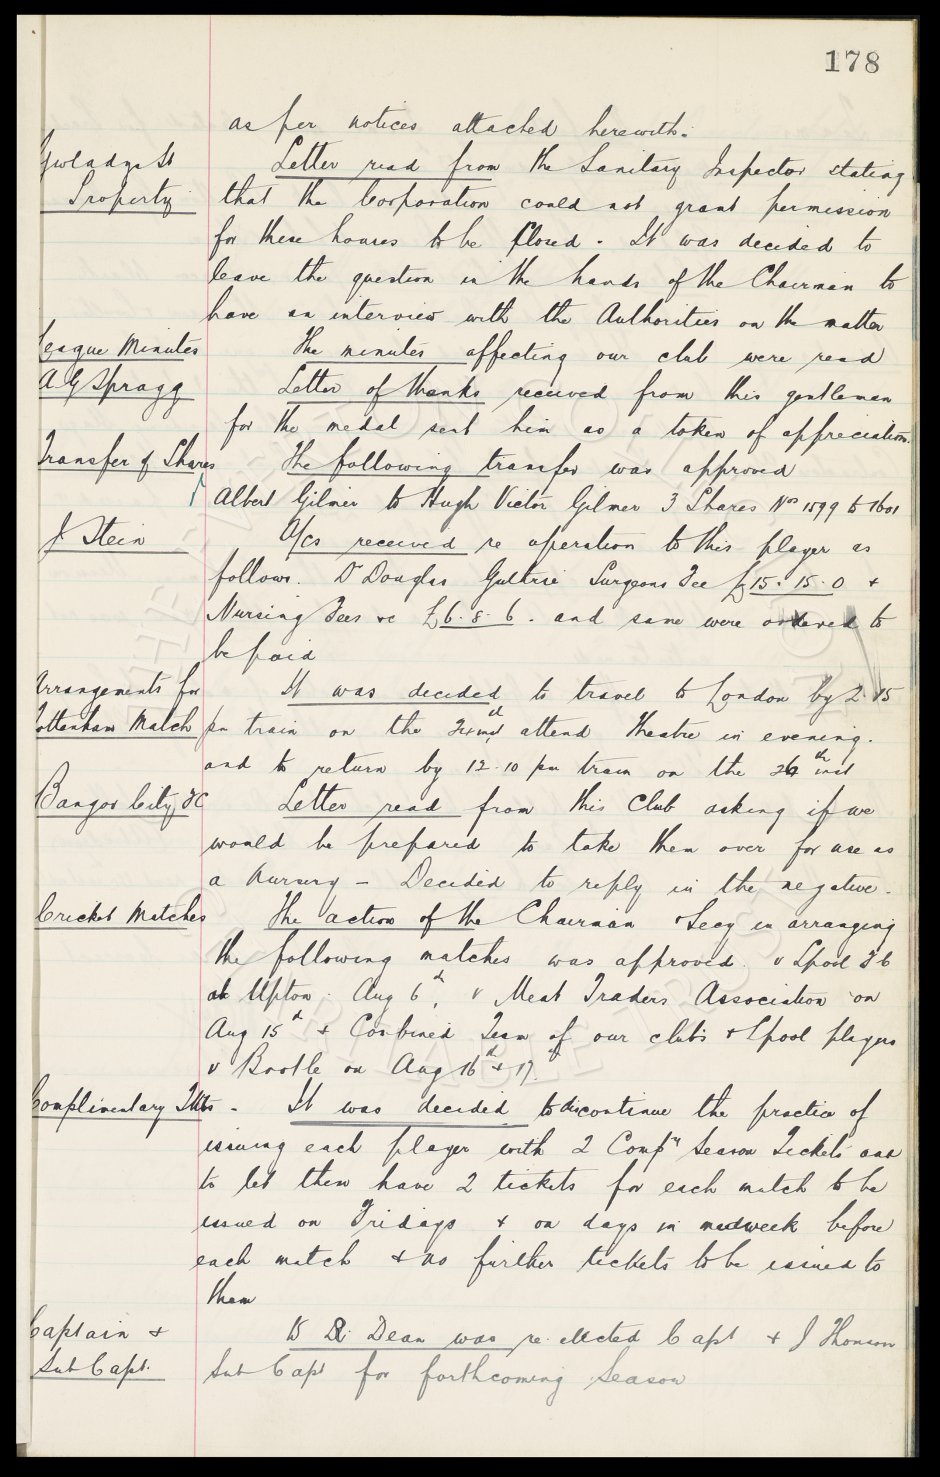 178
as per notices attached herewith.
Gwladys St Letter read from the Sanitary Inspector stating
Property that the Corporation could not grant permission
for these houses to be closed. It was decided to
leave the question in the hands of the Chairman to
have an interview with the Authorities on the matter
League Minutes The minutes affecting our club were read
A G Spragg Letter of thanks received from this gentleman
for the medal sent him as a token of appreciation.
Transfer of Shares The following transfer was approved
Albert Gilmer to Hugh Victor Gilmer 3 Shares Nos 1599 to 1601
J Stein A/cs received re operation to this player as
follows. D Douglas Guthrie Surgeons Fee £15. 15. 0 +
Nursing Fees &c £6. 8. 6. and same were ordered to
be paid
Arrangements for It was decided to travel to London by 2.15
Tottenham Match pm train on the inst, attend Theatre in evening.
and to return by 12.10 pm train on the 26th inst
Bangor City FC Letter read from this Club asking if we
would be prepared to take them over for use as
a nursery - Decided to reply in the negative.
Cricket Matches The action of the Chairman & Secy in arranging
the following matches was approved. v Lpool FC
at Upton. Aug 6th, v Meat Traders Association on
Aug 15th + Combined Team of our clubs + Lpool players
v Bootle on Aug 16th + 17.
Complimentary Tkts - It was decided to discontinue the practice of
issuing each player with 2 Compy Season Tickets and
to let them have 2 tickets for each match to be
issued on Fridays + on days in midweek before
each match + no further tickets to be issued to
them
Captain + W R Dean was re-elected Capt + J Thomson
Sub Capt. Sub Capt for forthcoming Season